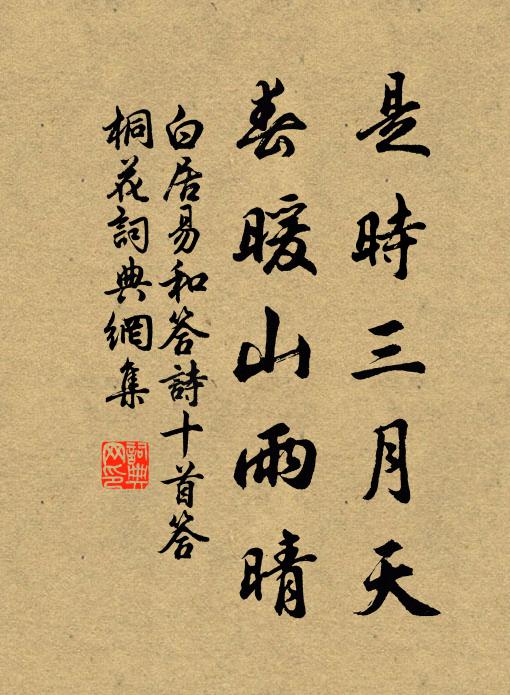 是時三月天
春暖山雨晴
白居易和答詩十首答
桐花詞典網集
詞典
网印